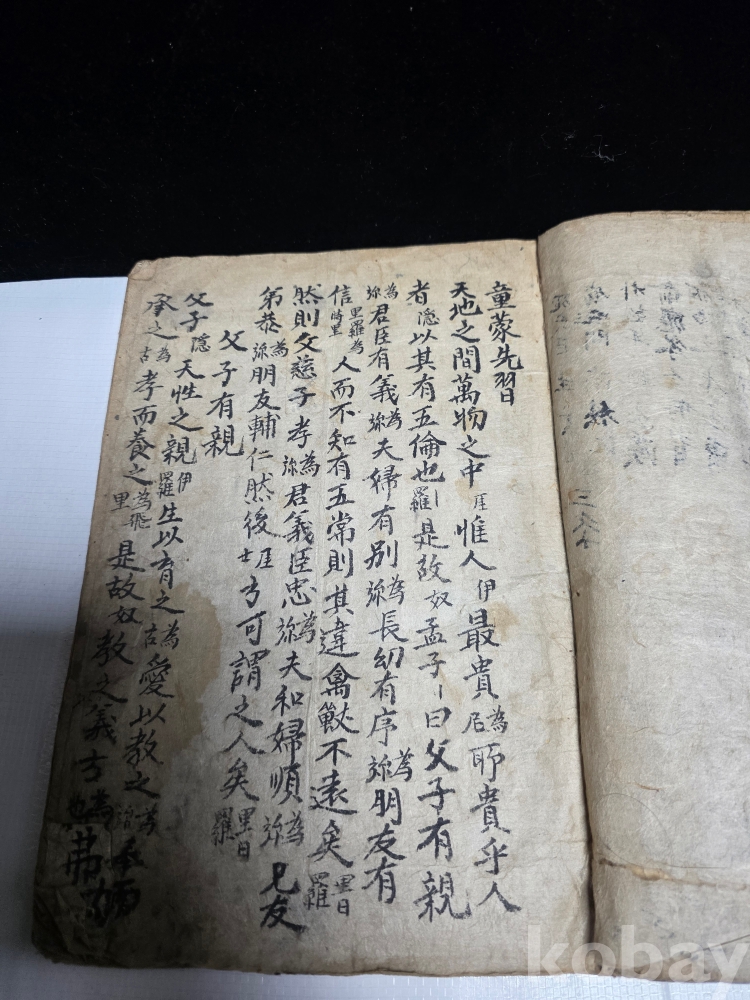 童蒙先習
天地之間萬物之中厓惟人伊最貴為尼所貴乎人
者隐以其有五倫也羅是故奴孟子曰父子有親
為旀君臣有義為旀夫婦有別為旀長幼有序為旀朋友有
信為羅時里人而不知有五常則其違禽獸不遠矣里日羅
然則父慈子孝為旀君義臣忠為旀夫和婦順為旀兄友
弟恭為旀朋友輔仁然後厓士方可謂之人矣里日羅
父子有親
父子隐天性之親伊羅生以育之為古愛以教之為旀
承之為古孝而養之為飛里是故奴教之義方為
kobay